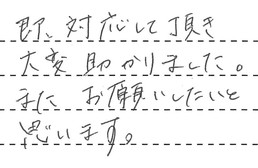 即、対応して頂き
大変助かりました。
また お願いしたいと
思います。